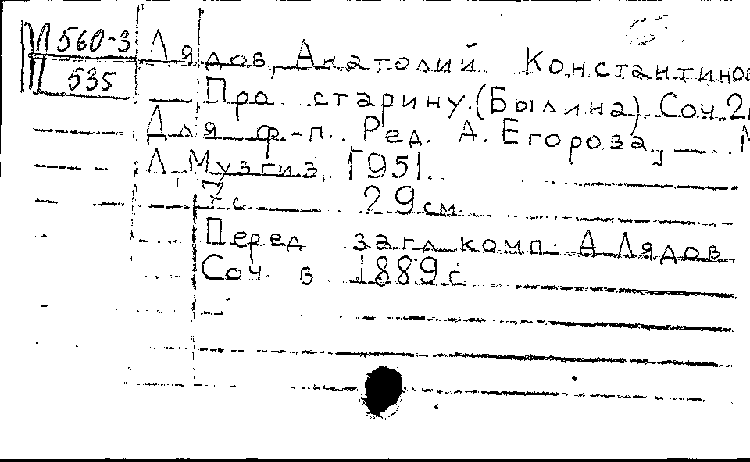 М 560-3
535
Лядов, Анатолий Константинов
Про старину. (Былина) Соч. 21
Для ф-п. Ред. А. Егорова, — М
Л. Музгиз, 1951.
7 с 29 см.
Перед загл комп. А Лядов
Соч. в 1889 г.